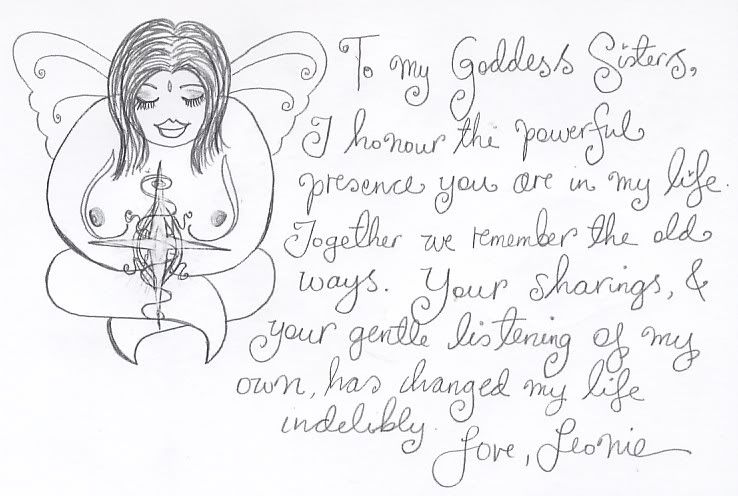 To my Goddess Sisters,
I honour the powerful
presence you are in my life.
Together we remember the old
ways. Your sharings, &
your gentle listening of my
own, has changed my life
indelibly.
Love, Leonie